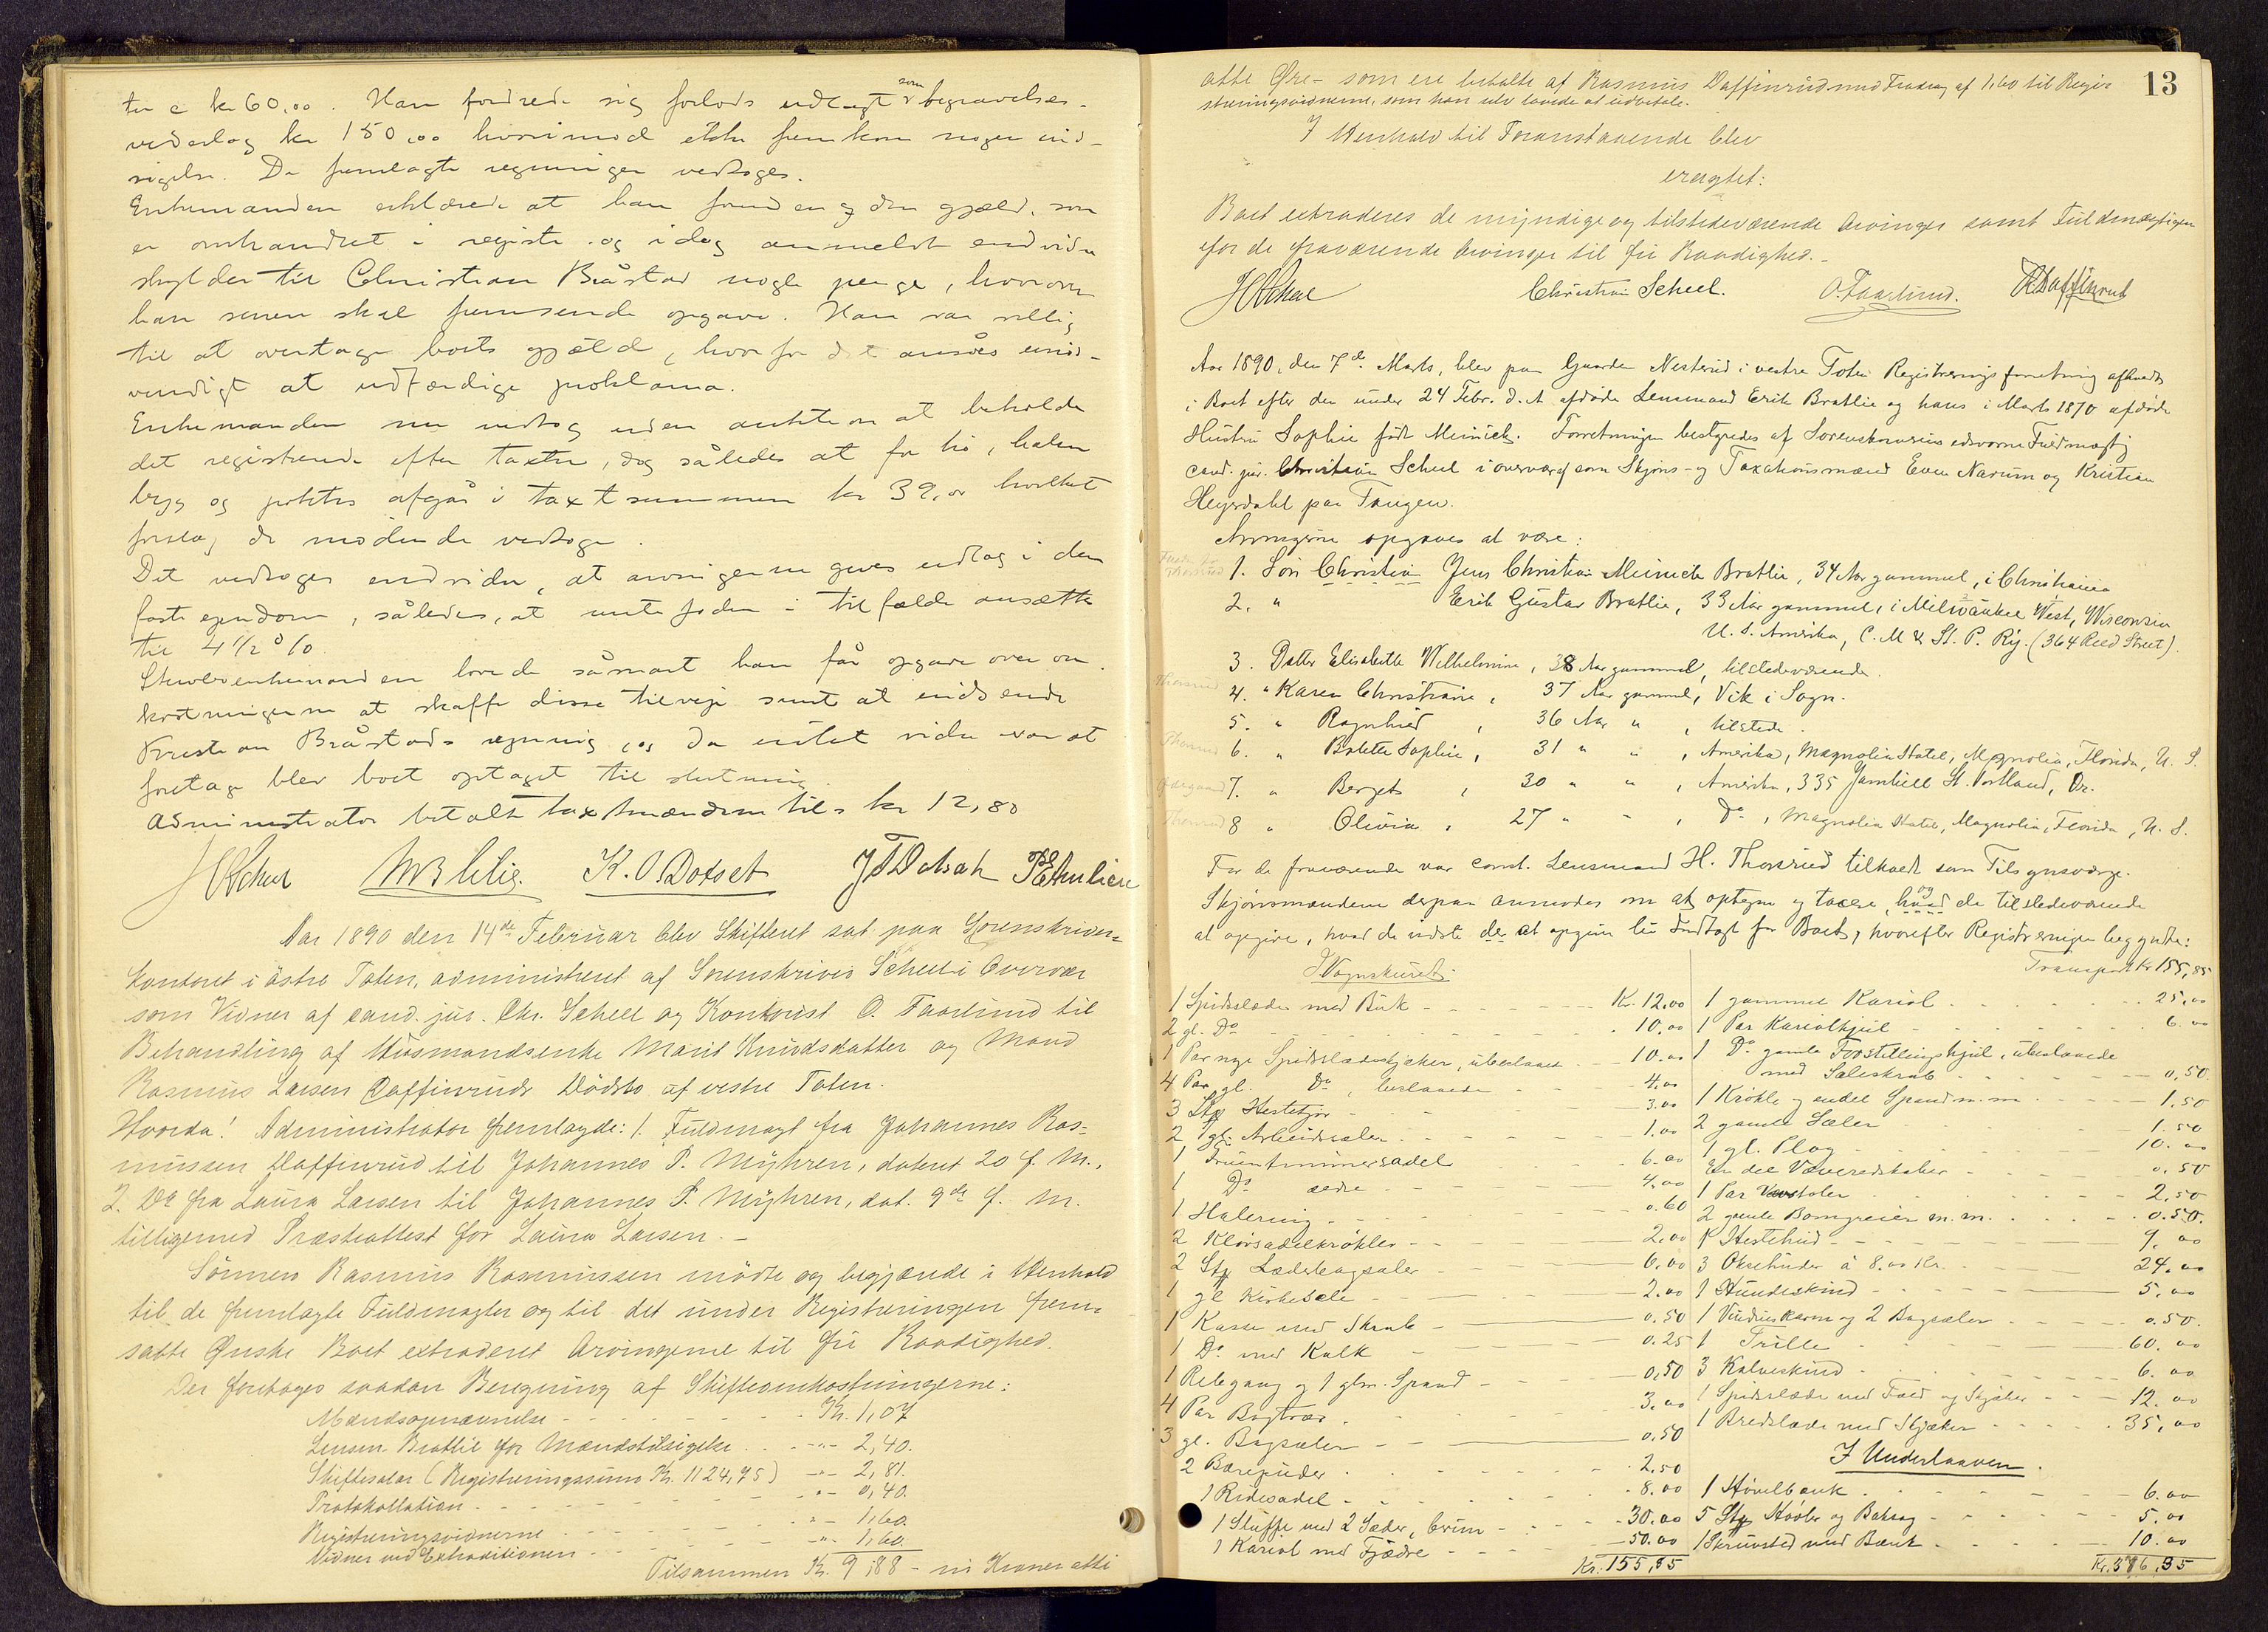 ter a kr 60,00. Han fordrede sig forlods udlagt som begravelses-
vederlag kr 150,00 hvorimod ikke fremkom nogen ind-
sigelse. De fremlagte regninger vedtoges.
Enkemanden erklærede at han foruden og den gjæld, som
er omhandlet i registr. og idag anmeldt endvidere
skylder til Christian Bråstad nogle penge, hvorom
han senere skal fremsende opgave. Han var villig
til at overtage boets gjæld, hvorfor det ansåes unød-
vendigt at udfærdige proklama.
Enkemanden vedtog uden auktion at beholde
det registrerede efter taxten, dog således at for hø, halm
byg og poteter afgår i taxtsummen kr 39,00 hvilket
forslag de mødende vedtoge.
Det vedtoges endvidere, at arvingerne gives udlag i den
faste eiendom, således, at rentefoden i tilfælde ansættes
til 4 1/2 %
Stervboenkemanden lovede såsnart han får opgave over om-
kostningerne at skaffe disse tilveje samt at indsende
Kristian Bråstads regning, og da intet videre var at
foretage blev boet optaget til slutning.
Administrator betalte taxtmændene tils kr 12,80
HScheel K. O. Dotset
Aar 1890 den 14de Februar blev Skifteret sat paa Sorenskriver-
kontoret i østre Toten, administreret af Sorenskriver Scheel i Overvær
som Vidner af cand. jur. Chr. Scheel og Kontorist O. Faarlund til
Behandling af Husmandsenke Marit Knudsdatter og Mand
Rasmus Larsen Daffinruds Dødsbo af vestre Toten.
Hvorda! Administrator fremlagde: 1. Fuldmagt fra Johannes Ras-
mussen Daffinrud til Johannes P. Myhren, dateret 20 f. M.,
2. Do fra Laura Larsen til Johannes P. Myhren, dat. 9de f. M.
tilligemed Præsteattest for Laura Larsen. -
Sønnen Rasmus Rasmussen mødte og begjærede i Henhold
til de fremlagte Fuldmagter og til det under Registreringen frem-
satte Ønske Boet extraderet Arvingerne til fri Raadighed.
Der foretoges saadan Beregning af Skifteomkostningerne:
Mændsopnævnelse - - - Kr. 1,07
Lensm. Brattlie for Mændstilsigelse . . -"- 2,40.
Skiftesalar (Registreringssum Kr. 1124,75) -"- 2,81.
Protokollation - - - -"- 0,40.
Registreringsvidnerne - - - "- 1,60.
Vidner ved Extraditionen - - - -"- 1,60.
Tilsammen Kr. 9,88 - ni Kroner otti
13
otte Øre - som ere betalte af Rasmus Daffinrud med Fradrag af 1,60 til Regi-
streringsvidnerne, som han selv lovede at udbetale.
I Henhold til Foranstaaende blev
eragtet:
Boet extraderes de myndige og tilstedeværende Arvinger samt Fuldmægtigen
for de fraværende Arvinger til fri Raadighed. -
HScheel Christian Scheel. O. Faarlund. R Daffinrud
Aar 1890, den 7de Marts, blev paa Gaarden Nesterud i vestre Toten Registreringsforretning afholdt
i Boet efter den under 24 Febr. d. A. afdøde Lensmand Erik Brattlie og hans i Marts 1870 afdøde
Hustru Sophie født Meinich. Forretningen bestyredes af Sorenskriverens edsvorne Fuldmægtig
cand. jur. Christian Scheel i overvær af som Skjøns- og Taxationsmænd Even Narum og Kristian
Heyerdahl paa Tangen.
Arvingerne opgaves at være:
1. Søn Christian Jens Christian Meinich Brattlie, 34 Aar gammel, i Christiania
2. " Erik Gustav Brattlie, 33 Aar gammel, i Milwaukee West, Wisconsin
U. S. Amerika, C. M. & St. P. Ry. (364 Reed Street).
3. Datter Elisabeth Wilhelmine, 38 Aar gammel, tilstedeværende.
Thorsrud 4. " Karen Christiane, 37 Aar gammel, Vik i Sogn.
5. " Ragnhild, 36 Aar " , tilstede.
Thorsrud 6. " Bolette Sophie, 31 " " , Amerika, Magnolia Hotel, Magnolia, Florida, U. S.
7. " Berget, 30 " " , Amerika, 335 Jamhill St. Portland, Or.
Thorsrud 8 " Olivia, 27 " " , Do, Magnolia Hotel, Magnolia, Florida, U. S.
For de fraværende var const. Lensmand H. Thorsrud tilkaldt som Tilsynsværge.
Skjønsmændene derpaa anmodes om at optegne og taxere, og hvad de tilstedeværende
at opgive, hvad de vidste der at opgive til Indtægt for Boet, hvorefter Registreringen begyndte:
I Vognskuret.
1 Spidsslæde med Buk - - - Kr. 12.00
2 gl. Do - - - 10.00
1 Par nye Spidsslædeskjæker, ubeslaaede - 10.00
4 Par gl. Do, beslaaede - - 4.00
3 Stk Hestetjor - - - 3.00
2 gl. Arbeidssæler - - - 1.00
1 Fruentimmersadel - - - 6.00
1 Do ældre - - - 4.00
1 Halering - - - 0.60
2 Kløvsadelkrøkler - - - 2.00
2 Stk Læderbagsæler - - - 6.00
1 gl Kirkesele - - - 2.00
1 Kasse med Skrab - - - 0.50
1 Do med Kalk - - - 0.25
1 Rebgang og 1 glm. Spand - - - 0,50
4 Par Bogtræ - - - 3.00
3 gl. Bogsæler - - - 0,50
2 Bærepuder - - - 2.50
1 Ridesadel - - - 8.00
1 Sluffe med 2 Sæder, brun - - - 30.00
1 Kariol med Fjædre - - - 50.00
Kr. 155,85
Transport Kr 155,85
1 gammel Kariol - - - 25,00
1 Par Kariolhjul - - - 6.00
1 Do gamle Forstillingshjul, ubeslaaede
med Sæleskrab - - - 0,50.
1 Krøkle og endel Spænd m. m. - - - 1.50
2 gamle Sæler - - - 1.50
1 gl. Plog - - - 10.00
En del Væveredskaber - - - 0.50
1 Par Vævstoler - - - 2,50
2 gamle Bomgreier m. m. - - - 0.50.
1 Hestehud - - - 9.00
3 Oksehuder à 8.00 Kr. - - - 24.00
1 Hundeskind - - - 5,00
1 Vinduskarm og 2 Bogsæler - - - 0.50.
1 Trille - - - 60.00
3 Kalveskind - - - 6.00
1 Spidsslæde med Fæld og Skjæker - - 12.00
1 Bredslæde med Skjæker - - - 35,00
I Underlaaven.
1 Høvelbænk - - - 6.00
5 Stk Høvler og Baksag - - - 5.00
1 Skruvsted med Bænk - - - 10.00
Kr. 376,35